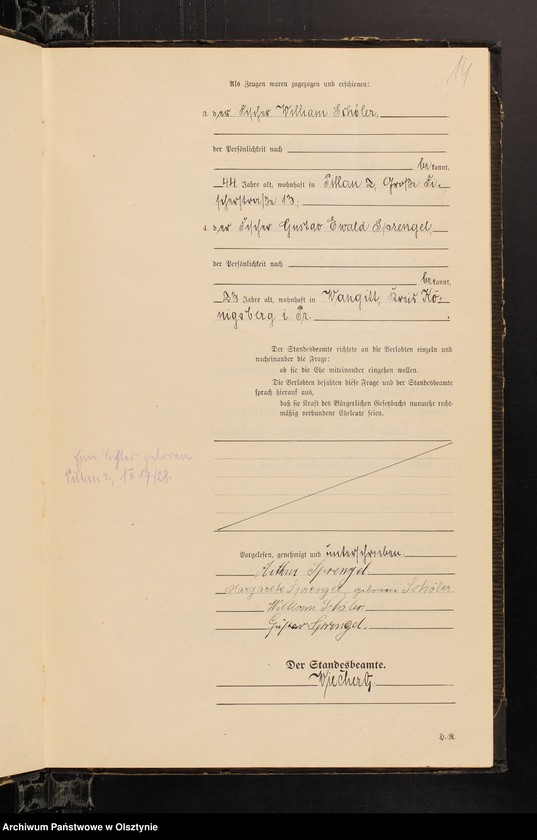 14
Als Zeugen waren zugezogen und erschienen:
3. der Fischer William Schöler,
der Persönlichkeit nach
bekannt,
44 Jahre alt, wohnhaft in Pillau 2, Große Fi-
scherstraße 13;
4. der Fischer Gustav Ewald Sprengel,
der Persönlichkeit nach
bekannt,
23 Jahre alt, wohnhaft in Wangitt, Kreis Kö-
nigsberg i. Pr.
Der Standesbeamte richtete an die Verlobten einzeln und
nacheinander die Frage:
ob sie die Ehe miteinander eingehen wollen.
Die Verlobten bejahten diese Frage und der Standesbeamte
sprach hierauf aus,
daß sie kraft des Bürgerlichen Gesetzbuchs nunmehr recht-
mäßig verbundene Eheleute seien.
Eine Tochter geboren
Pillau 2, No 17/28.
Vorgelesen, genehmigt und unterschrieben
Arthur Sprengel.
Margarete Sprengel, geborene Schöler
William Schöler
Gustav Sprengel.
Der Standesbeamte.
H.-R.
Archiwum Państwowe w Olsztynie